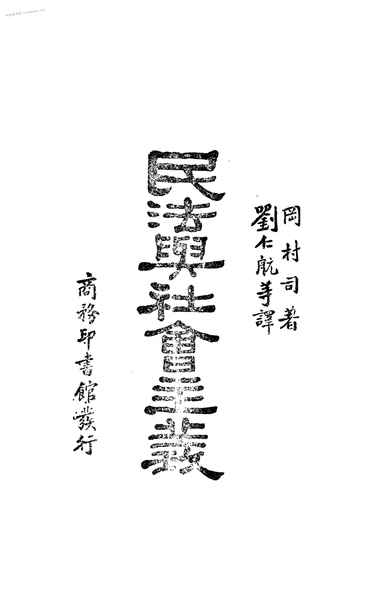 岡村司著
劉仁航等譯
民法與社會主義
商務印書館發行